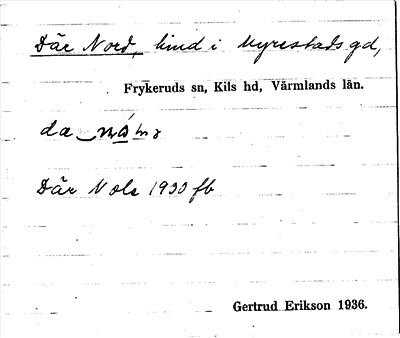 Där Nord, lind i Kyrestads gd,
Frykeruds sn, Kils hd, Värmlands län.
Där Nols 1930 fb
Gertrud Erikson 1936.